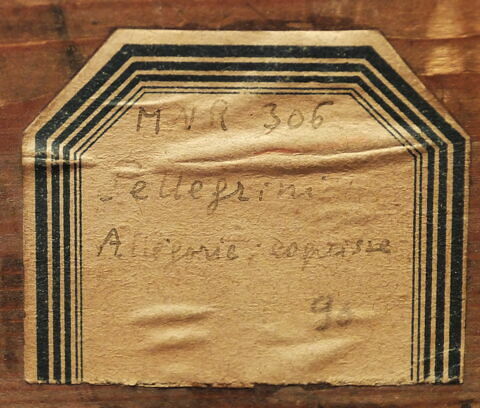 MNR 306
Pellegrini
Allégorie; esquisse
98